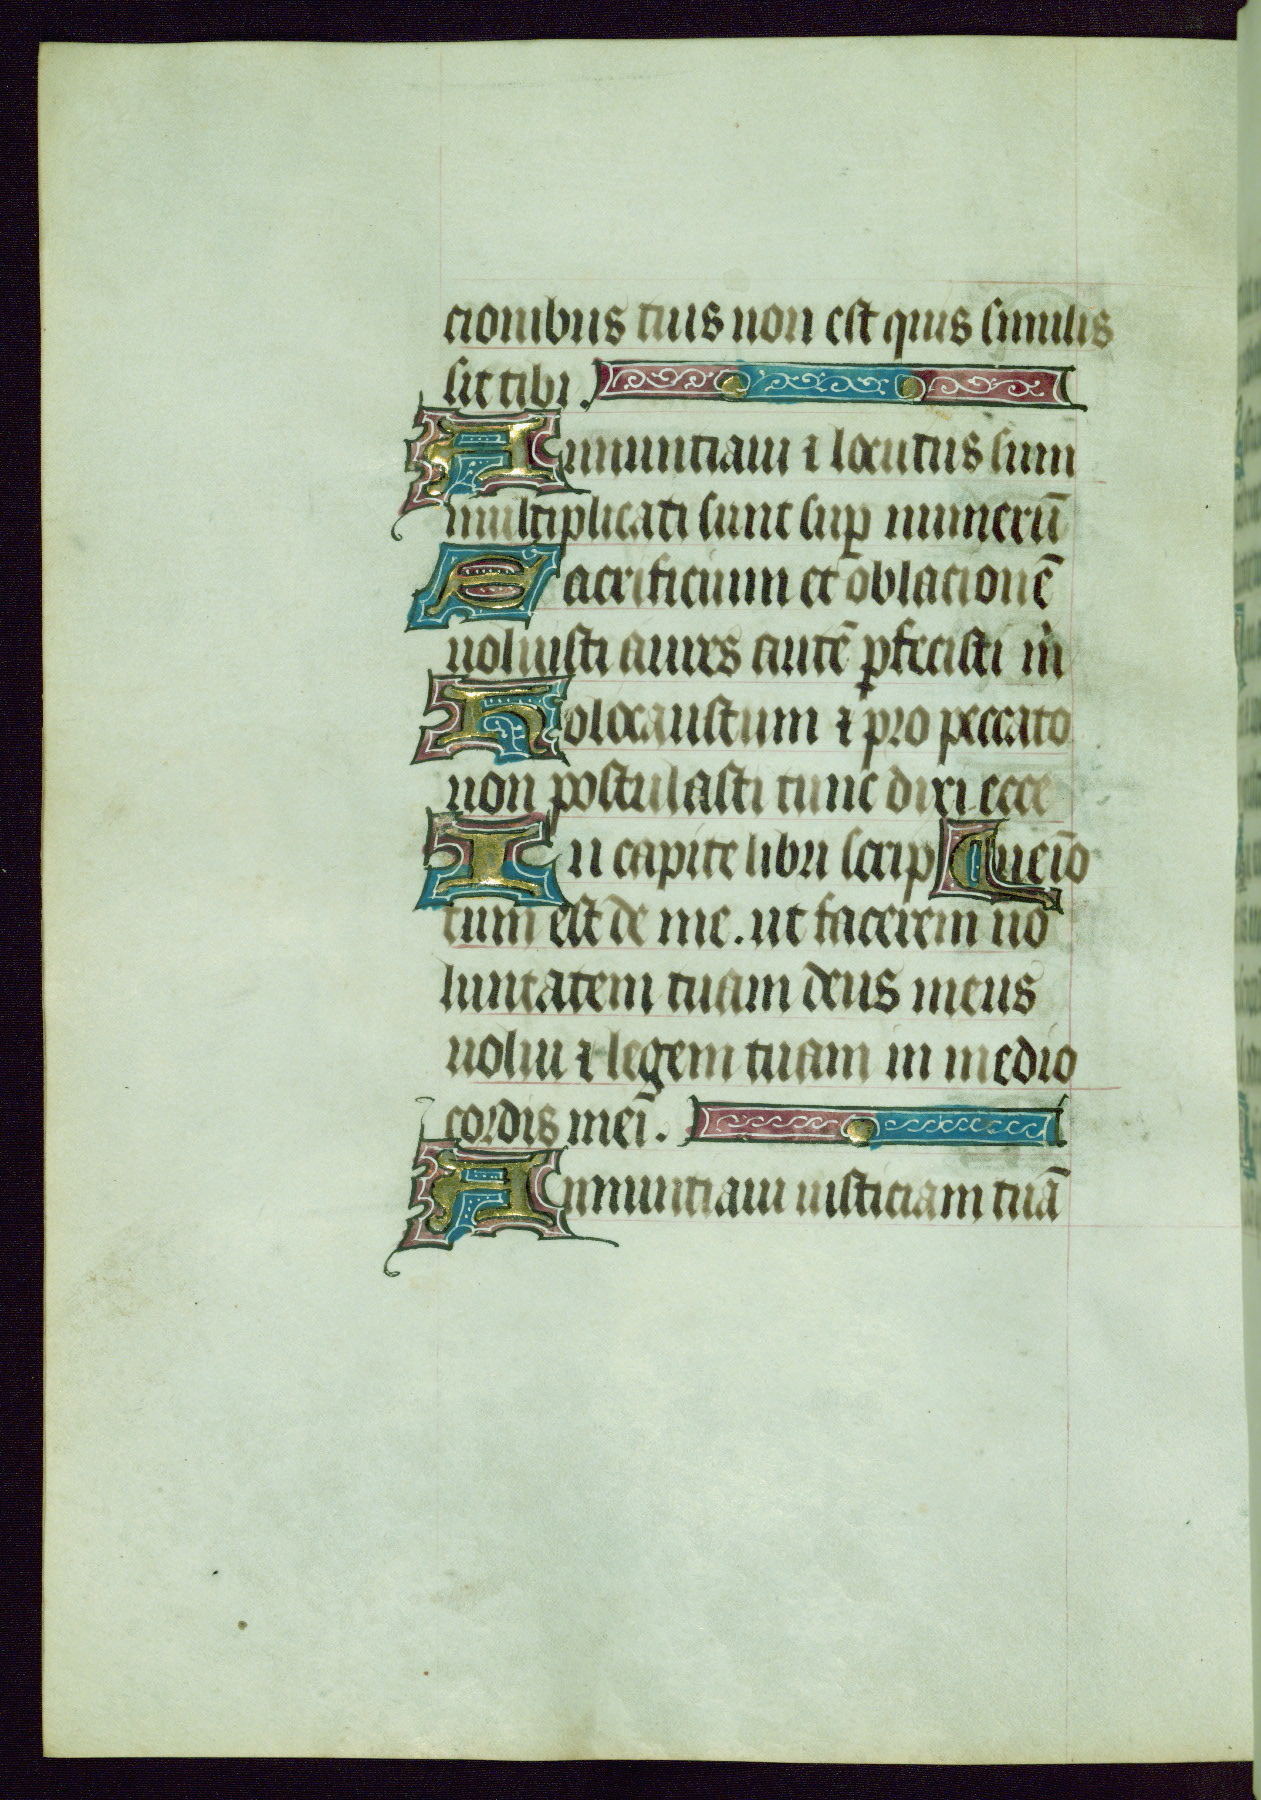 cionibus tuis non est quis similis
sit tibi.
Annuntiaui ⁊ locutus sum
multiplicati sunt sup numerū
Sacrificium et oblacionē
uoluisti aures autē pfecisti m
Holocaustum ⁊ pro peccato
non postulasti tunc dixi ecce
In capite libri scrip Ueīo
tum est de me. ut facerem uo
luntatem tuam deus meus
uolui ⁊ legem tuam in medio
cordis mei.
Annuntiaui iusticiam tuā